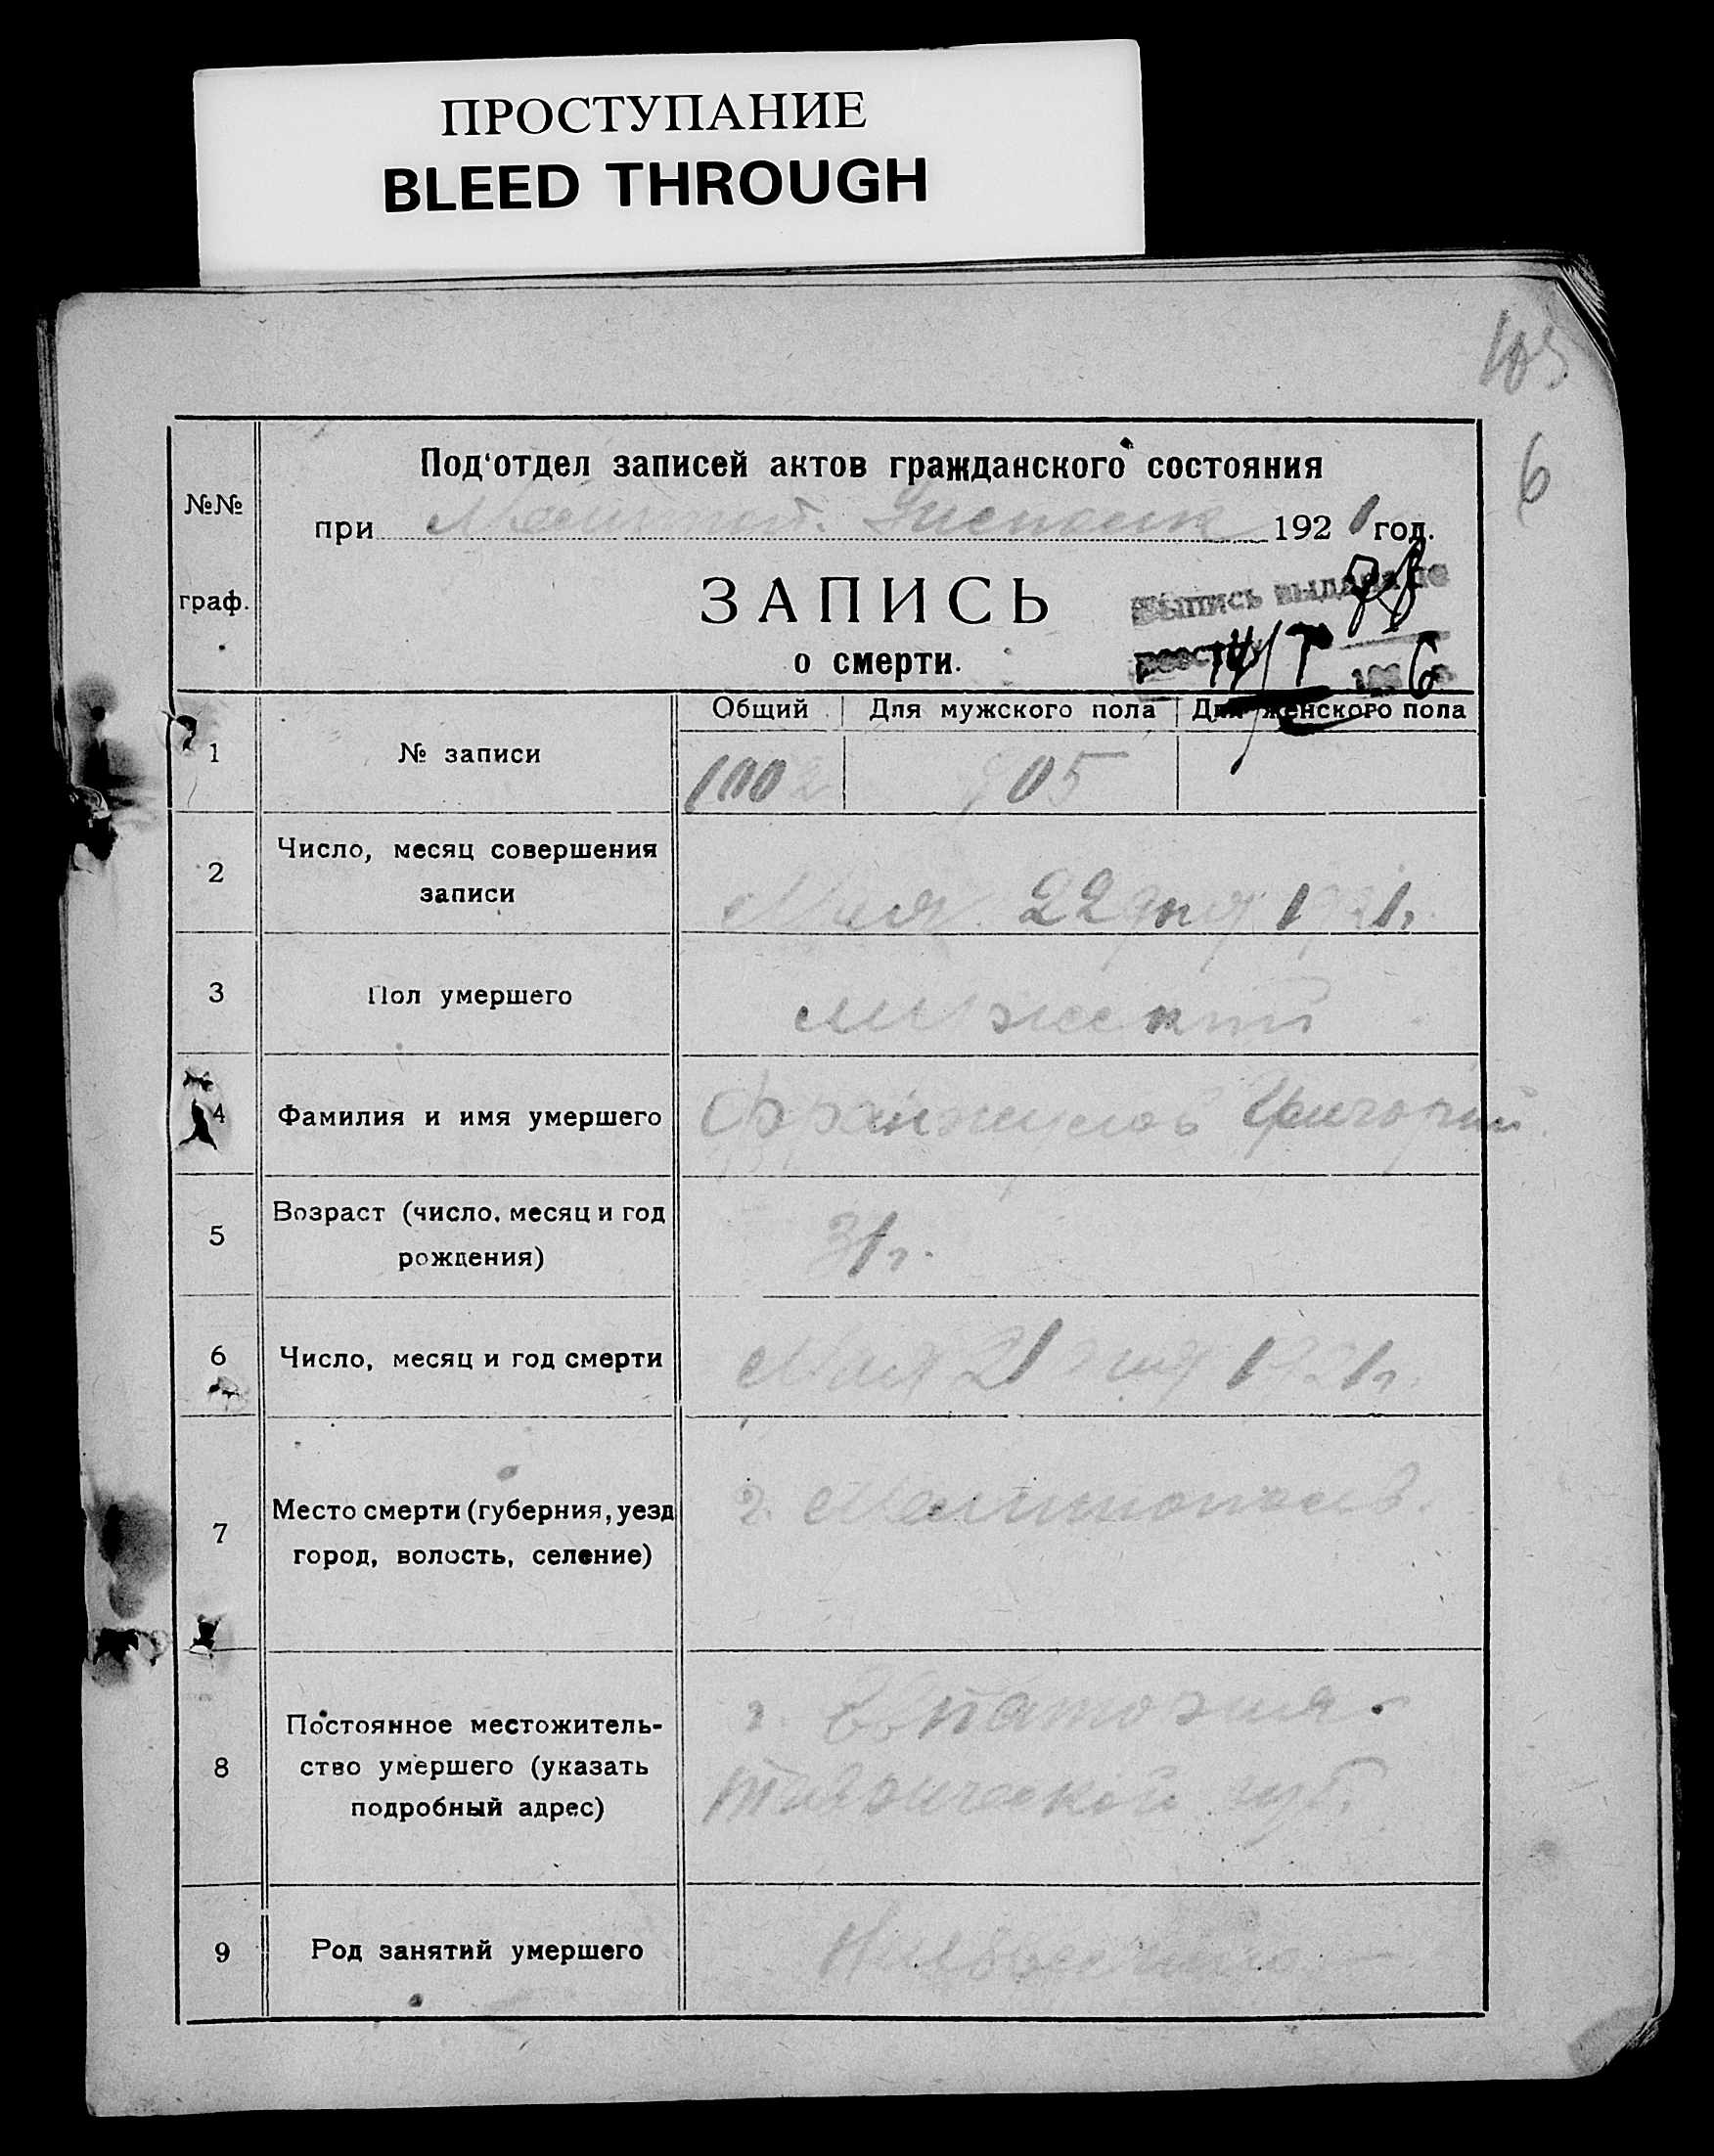 ПРОСТУПАНИЕ
BLEED THROUGH
6
Под'отдел записей актов гражданского состояния
№№
при 1921 год.
граф.
ЗАПИСЬ
выпись выдана по
о смерти.
Общий Для мужского пола Для женского пола
1 № записи 1002 905
2 Число, месяц совершения
записи
Мая 22 дня 1921г.
3 Пол умершего мужской
4 Фамилия и имя умершего Григорий
5 Возраст (число, месяц и год
рождения)
31г.
6 Число, месяц и год смерти Мая 21 дня 1921г.
7 Место смерти (губерния, уезд
город, волость, селение)
г. Мелитополь.
8 Постоянное местожитель-
ство умершего (указать
подробный адрес)
г. Евпатория.
Таврической губ.
9 Род занятий умершего